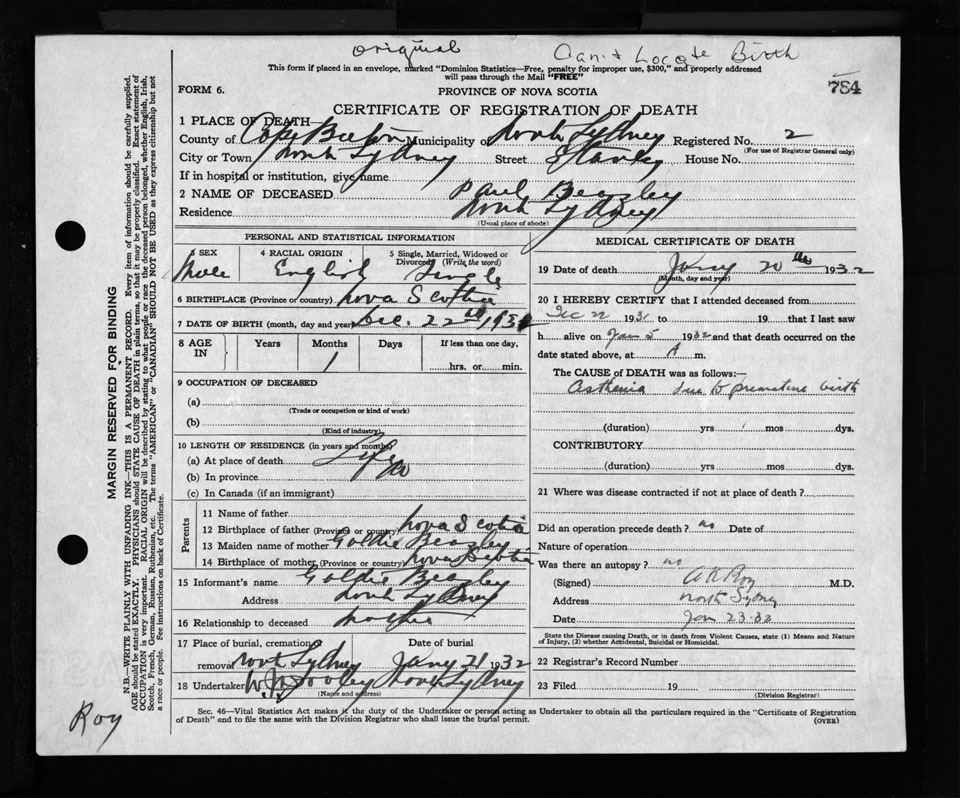 original Can't Locate Birth
This form if placed in an envelope, marked "Dominion Statistics—Free, penalty for improper use, $300," and properly addressed
will pass through the Mail "FREE"
784
FORM 6. PROVINCE OF NOVA SCOTIA
CERTIFICATE OF REGISTRATION OF DEATH
1 PLACE OF DEATH—
County of Cape Breton Municipality of North Sydney Registered No. 2
(For use of Registrar General only)
City or Town North Sydney Street Stanley House No.
If in hospital or institution, give name
2 NAME OF DECEASED Paul Beazley
Residence North Sydney
(Usual place of abode)
PERSONAL AND STATISTICAL INFORMATION
3 SEX 4 RACIAL ORIGIN 5 Single, Married, Widowed or Divorced (Write the word)
Male English Single
6 BIRTHPLACE (Province or country) Nova Scotia
7 DATE OF BIRTH (month, day and year) Dec. 22nd 1931
8 AGE IN Years Months Days If less than one day,
1
hrs. or min.
9 OCCUPATION OF DECEASED
(a)
(Trade or occupation or kind of work)
(b)
(Kind of industry)
10 LENGTH OF RESIDENCE (in years and months)
(a) At place of death Life
(b) In province do
(c) In Canada (if an immigrant)
Parents
11 Name of father
12 Birthplace of father (Province or country) Nova Scotia
13 Maiden name of mother Goldie Beazley
14 Birthplace of mother (Province or country) Nova Scotia
15 Informant's name Goldie Beazley
Address North Sydney
16 Relationship to deceased Mother
17 Place of burial, cremation, Date of burial
removal North Sydney Jany 21 1932
18 Undertaker North Sydney
(Name and address)
MEDICAL CERTIFICATE OF DEATH
19 Date of death Jany 20th 1932
(Month, day and year)
20 I HEREBY CERTIFY that I attended deceased from
Dec 22 1931 to 19 that I last saw
h alive on Jan 5 1932 and that death occurred on the
date stated above, at A m.
The CAUSE of DEATH was as follows:—
Asthenia due to premature birth
(duration) yrs mos dys.
CONTRIBUTORY
(duration) yrs mos dys.
21 Where was disease contracted if not at place of death?
Did an operation precede death? no Date of
Nature of operation
Was there an autopsy? no
(Signed) Roy M.D.
Address North Sydney
Date Jan 23.32
State the Disease causing Death, or in death from Violent Causes, state (1) Means and Nature
of Injury, (2) whether Accidental, Suicidal or Homicidal.
22 Registrar's Record Number
23 Filed 19
(Division Registrar)
Sec. 46—Vital Statistics Act makes it the duty of the Undertaker or person acting as Undertaker to obtain all the particulars required in the "Certificate of Registration
of Death" and to file the same with the Division Registrar who shall issue the burial permit.
(OVER)
MARGIN RESERVED FOR BINDING
N.B.—WRITE PLAINLY WITH UNFADING INK—THIS IS A PERMANENT RECORD. Every item of information should be carefully supplied.
AGE should be stated EXACTLY. PHYSICIANS should STATE CAUSE OF DEATH in plain terms, so that it may be properly classified. Exact statement of
OCCUPATION is very important. RACIAL ORIGIN will be described by stating to what people or race the deceased person belonged, whether English, Irish,
Scotch, French, German, Russian, Ruthenian, etc. The terms "AMERICAN" or "CANADIAN" SHOULD NOT BE USED as they express citizenship but not
a race or people. See instructions on back of Certificate.
Roy